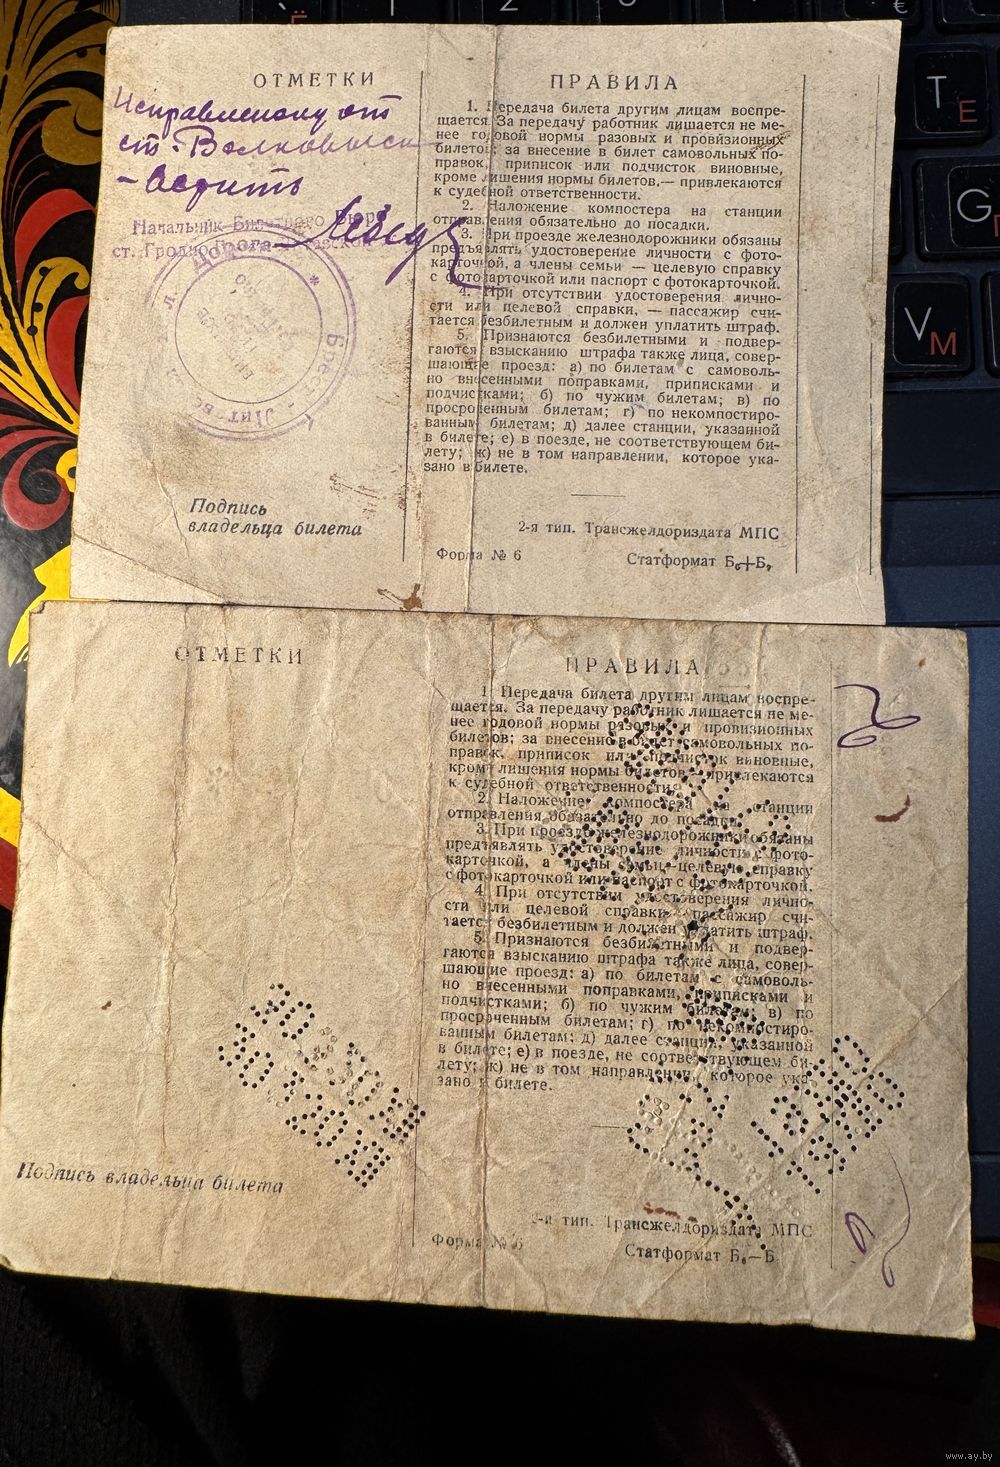 ОТМЕТКИ
Исправленому от
ст. Волковыск
Начальник Билетного бюро
ст. Гродно
дорога
* Брест-Лит
Подпись
владельца билета
ПРАВИЛА
1. Передача билета другим лицам воспре-
щается. За передачу работник лишается не ме-
нее годовой нормы разовых и провизионных
билетов; за внесение в билет самовольных по-
правок, приписок или подчисток виновные,
кроме лишения нормы билетов,— привлекаются
к судебной ответственности.
2. Наложение компостера на станции
отправления обязательно до посадки.
3. При проезде железнодорожники обязаны
предъявлять удостоверение личности с фото-
карточкой, а члены семьи — целевую справку
с фотокарточкой или паспорт с фотокарточкой.
4. При отсутствии удостоверения лично-
сти или целевой справки, — пассажир счи-
тается безбилетным и должен уплатить штраф.
5. Признаются безбилетными и подвер-
гаются взысканию штрафа также лица, совер-
шающие проезд: а) по билетам с самоволь-
но внесенными поправками, приписками и
подчистками; б) по чужим билетам; в) по
просроченным билетам; г) по некомпостиро-
ванным билетам; д) далее станции, указанной
в билете; е) в поезде, не соответствующем би-
лету; ж) не в том направлении, которое ука-
зано в билете.
2-я тип. Трансжелдориздата МПС
Форма № 6
Статформат Б₆+Б₇
ОТМЕТКИ
Подпись владельца билета
ПРАВИЛА
1. Передача билета другим лицам воспре-
щается. За передачу работник лишается не ме-
нее годовой нормы разовых и провизионных
билетов; за внесение в билет самовольных по-
правок, приписок или подчисток виновные,
кроме лишения нормы билетов,— привлекаются
к судебной ответственности.
2. Наложение компостера на станции
отправления обязательно до посадки.
3. При проезде железнодорожники обязаны
предъявлять удостоверение личности с фото-
карточкой, а члены семьи—целевую справку
с фотокарточкой или паспорт с фотокарточкой.
4. При отсутствии удостоверения лично-
сти или целевой справки, — пассажир счи-
тается безбилетным и должен уплатить штраф.
5. Признаются безбилетными и подвер-
гаются взысканию штрафа также лица, совер-
шающие проезд: а) по билетам с самоволь-
но внесенными поправками, приписками и
подчистками; б) по чужим билетам; в) по
просроченным билетам; г) по некомпостиро-
ванным билетам; д) далее станции, указанной
в билете; е) в поезде, не соответствующем би-
лету; ж) не в том направлении, которое ука-
зано в билете.
2-я тип. Трансжелдориздата МПС
Форма № 6
Статформат Б₆—Б
T Е
G П
V М
www.ay.by